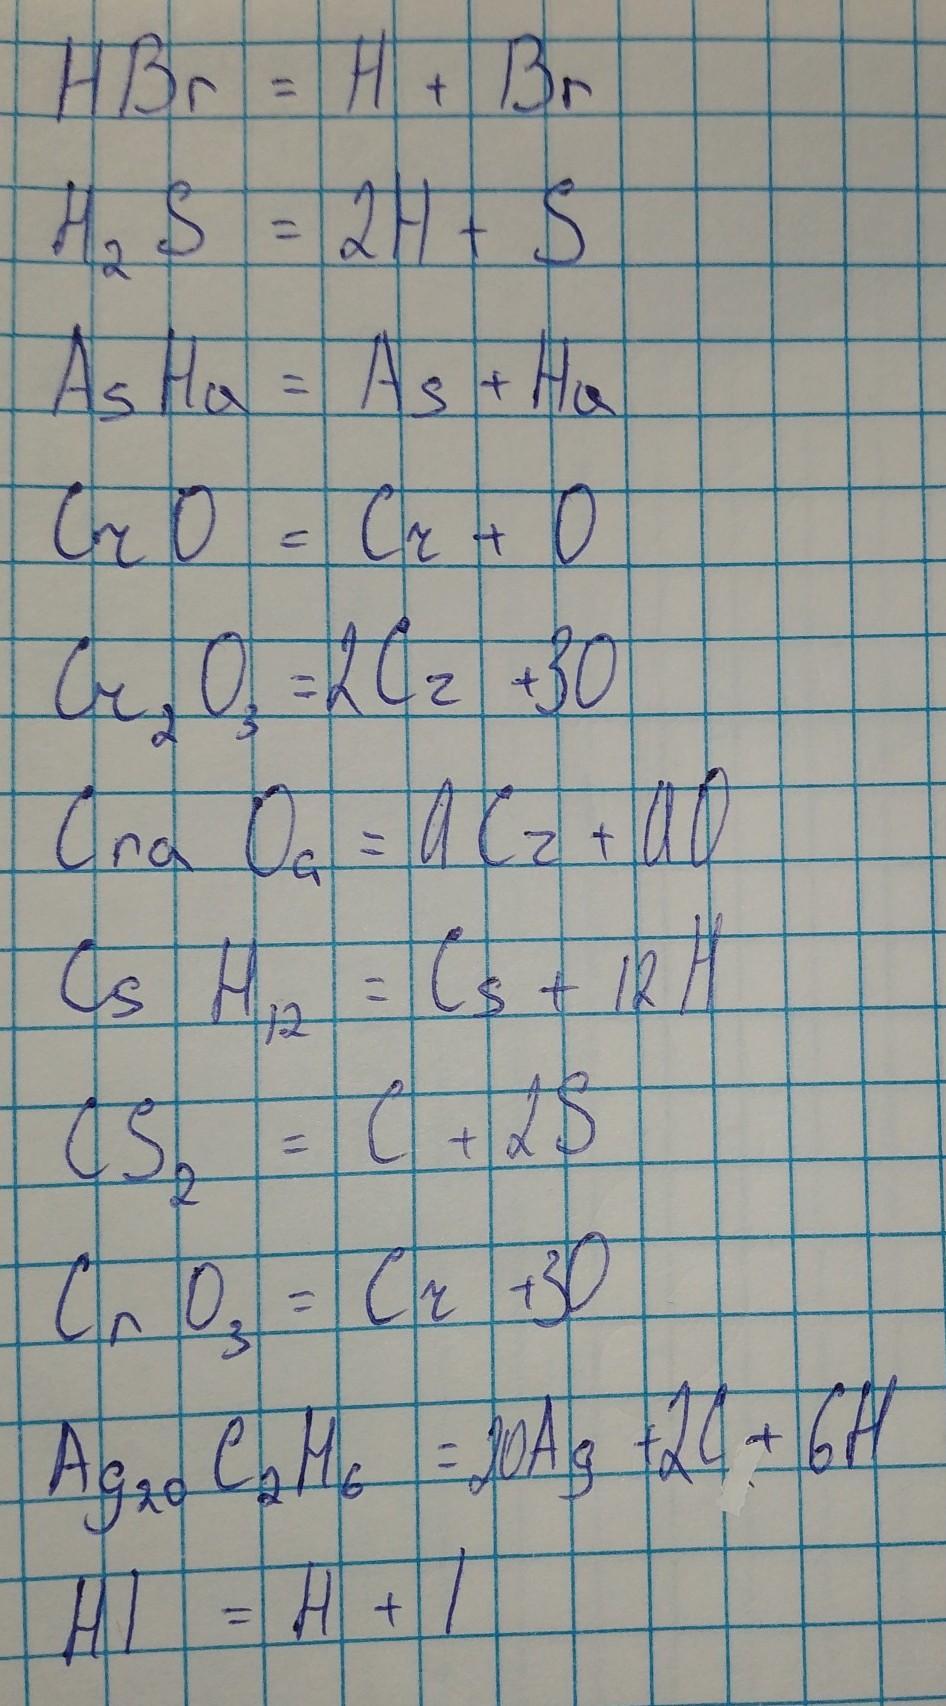 HBr = H + Br
H₂S = 2H + S
AsHa = As + Ha
CrO = Cr + O
Cr₂O₃ = 2Cr + 3O
CraOa = aCr + aO
CsH₁₂ = Cs + 12H
CS₂ = C + 2S
CrO₃ = Cr + 3O
Ag₂₀C₂H₆ = 20Ag + 2C + 6H
HI = H + I